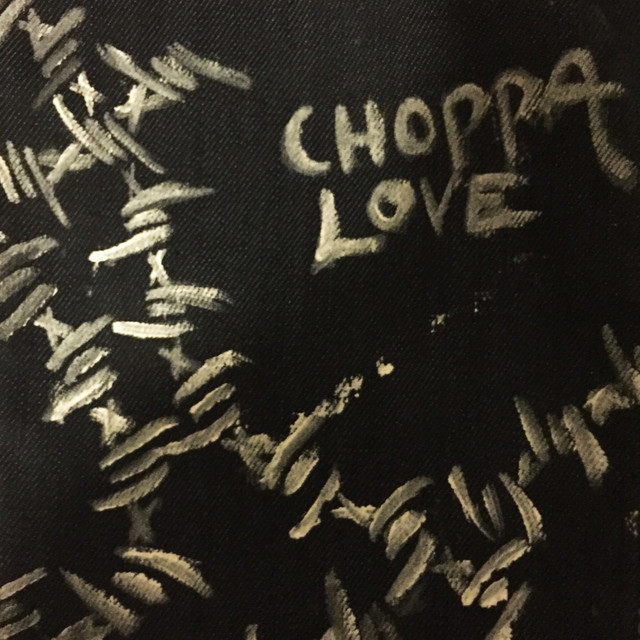 CHOPPA
LOVE